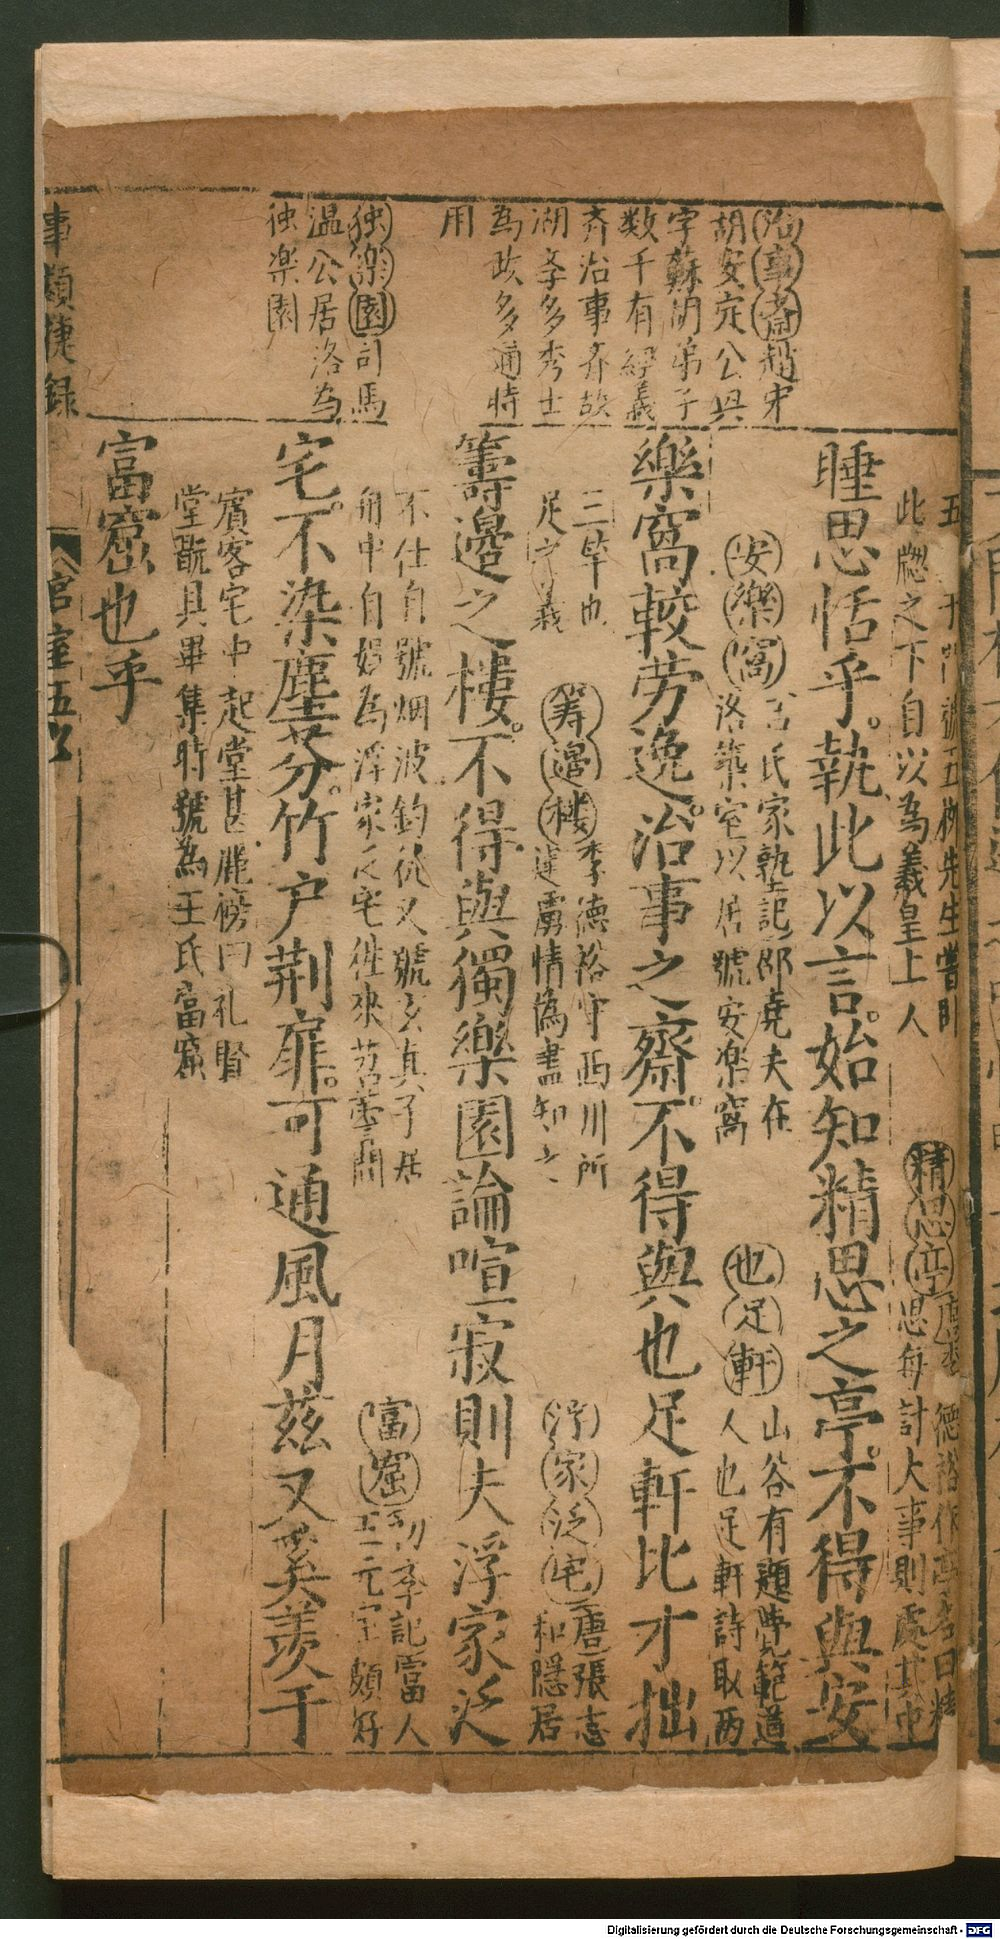 治事斎趙宋
胡安定公具
字蘇湖弟子
数千有經義
齐治事齐故
湖孝多秀士
為政多通時
用
独楽園司馬
温公居洛為
独楽園
五 號五柳先生嘗卧
此牕之下自以為義皇上人
精思亭唐李德裕作亭名曰精
思每計大事則處其中
睡思恬乎。執此以言。始知精思之亭。不得與安
安樂窩 氏家執記邵堯夫在
洛築室以居號安楽窩
也足軒山谷有題 範道
人也足軒詩取两
樂窩較劳逸。治事之齋。不得與也足軒比才拙
三畢也
足之義
筹邉楼李德裕守西川所
建虜情偽盡知之
浮家泛宅唐張志
和隱居
籌邉之樓。不得與獨樂園論喧寂則夫浮家泛
不仕自號烟波釣徒又號玄真子居
舟中自娯為浮家泛宅徃來苕霅間
富窟 記富人
王元宝頗好
宅。不染塵芬。竹户荆扉。可通風月茲又奚羡于
賓客宅中起堂甚麗榜曰礼賢
堂 具畢集時號為王氏富窟
富窟也乎
事類捷録
宫室五
Digitalisierung gefördert durch die Deutsche Forschungsgemeinschaft - DFG